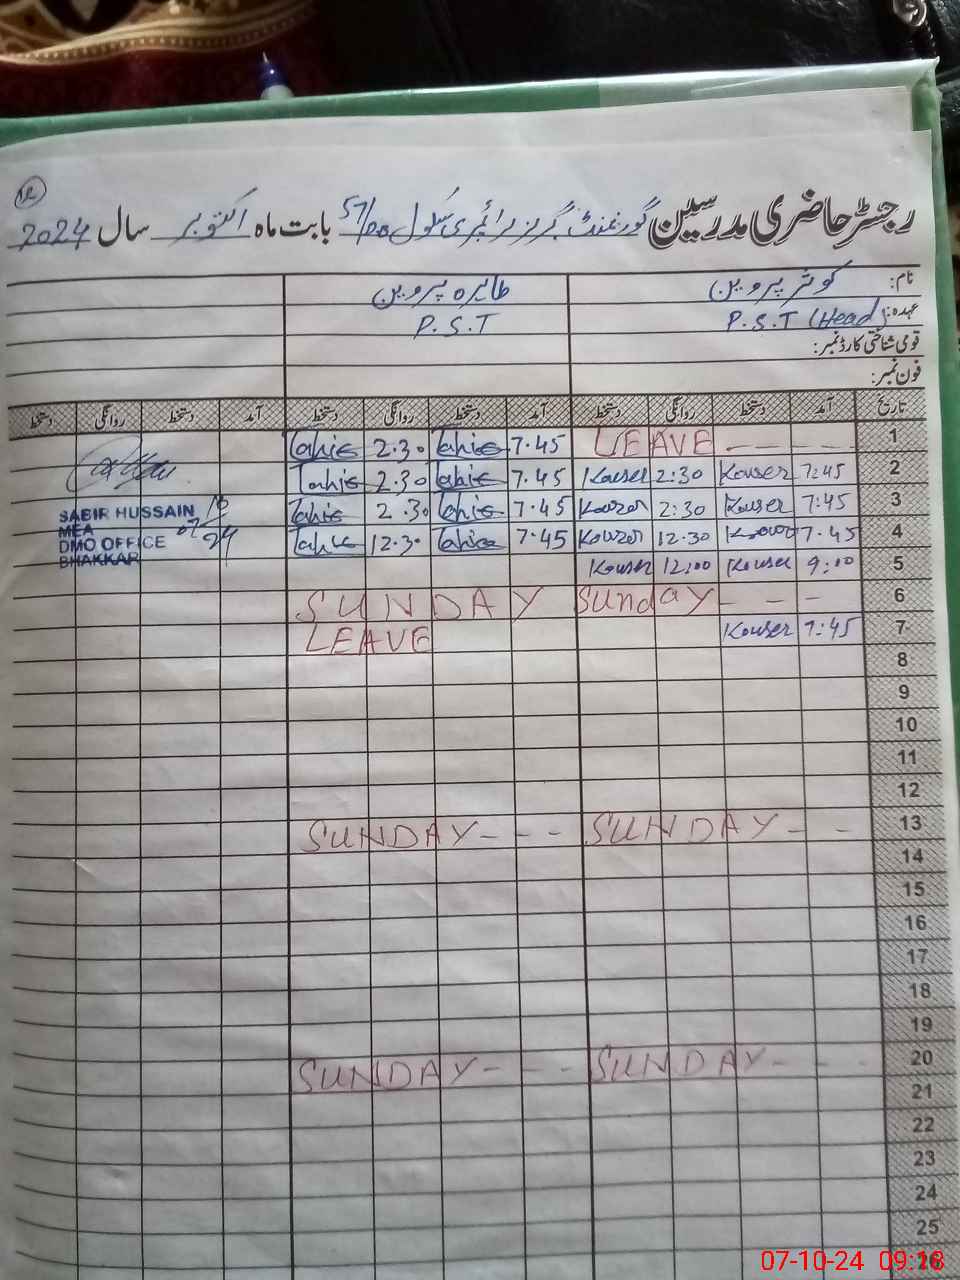 12
رجسٹر حاضری مدرسین گورنمنٹ گرلز پرائمری سکول 57/DB بابت ماہ اکتوبر سال 2024
نام: کوثر پروین طاہرہ پروین
عہدہ: P.S.T (Head) P.S.T
قومی شناختی کارڈ نمبر:
فون نمبر:
تاریخ آمد دستخط روانگی دستخط آمد دستخط روانگی دستخط آمد دستخط روانگی دستخط
1 LEAVE - - - 7.45 Tahir 2.30 Tahir
2 7:45 Kouser 2:30 Kouser 7.45 Tahir 2.30 Tahir
3 7:45 Kouser 2:30 Kouser 7.45 Tahir 2.30 Tahir
4 7.45 Kouser 12.30 Kouser 7.45 Tahir 12.30 Tahir
5 9:00 Kouser 12:00 Kouser
6 Sunday - - - SUNDAY
7 7:45 Kouser LEAVE
8
9
10
11
12
13 SUNDAY - - SUNDAY - - -
14
15
16
17
18
19
20 SUNDAY - - - SUNDAY - - -
21
22
23
24
25
26
SABIR HUSSAIN
MEA
DMO OFFICE
BHAKKAR
07/10/24
07-10-24 09:18